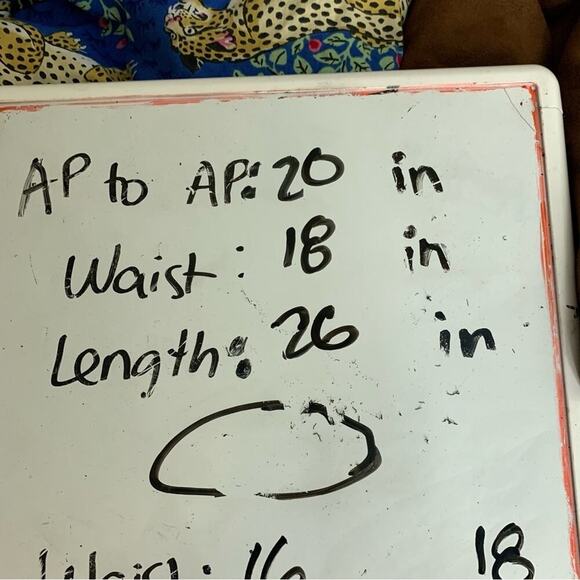 AP to AP: 20 in
Waist: 18 in
Length: 26 in
Waist: 16 18